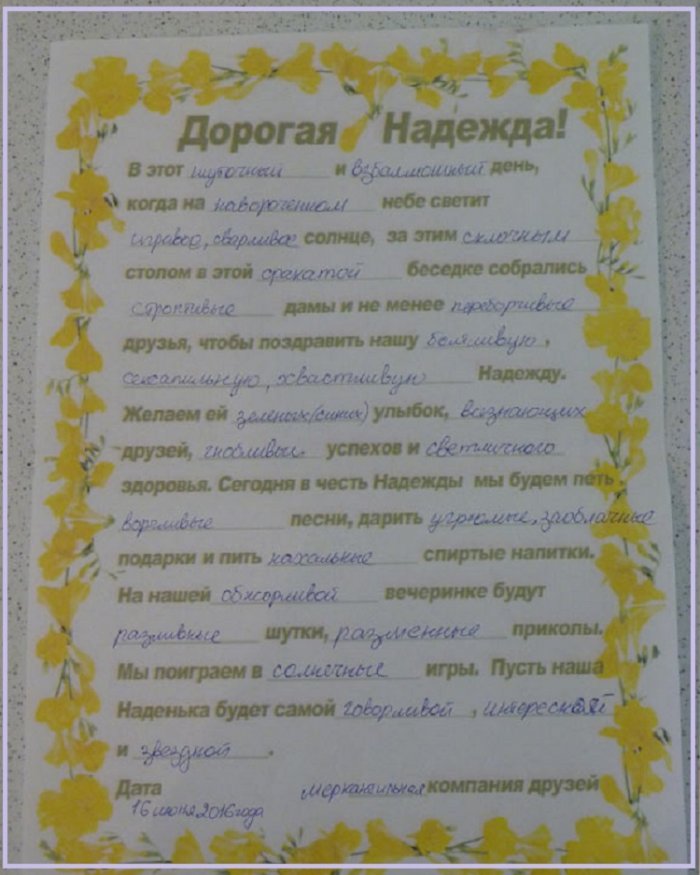 Дорогая Надежда!
В этот шуточный и взбалмошный день,
когда на навороченном небе светит
игривое, сварливое солнце, за этим склочным
столом в этой рукатой беседке собрались
строптивые дамы и не менее переборчивые
друзья, чтобы поздравить нашу болтливую,
сексапильную, хвастливую Надежду.
Желаем ей зеленых/синих) улыбок,
друзей, успехов и
здоровья. Сегодня в честь Надежды мы будем петь
ворчливые песни, дарить угрюмые, заоблачные
подарки и пить нахальные спиртые напитки.
На нашей обжорливой вечеринке будут
разливные шутки, разменные приколы.
Мы поиграем в солнечные игры. Пусть наша
Наденька будет самой говорливой, интересной
и звездной.
Дата меркантильная компания друзей
16 июня 2016 года